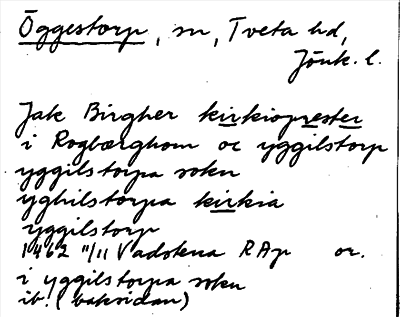 Öggestorp, sn, Tveta hd,
Jönk. l.
Jak Birgher kirkioprester
i Rogbærghom oc yggilstorp
yggilstorpa sokn
yghilstorpa kirkia
yggilstorp
1462 11/11 Vadstena RAp or.
i yggilstorpa sokn
ib. (baksidan)